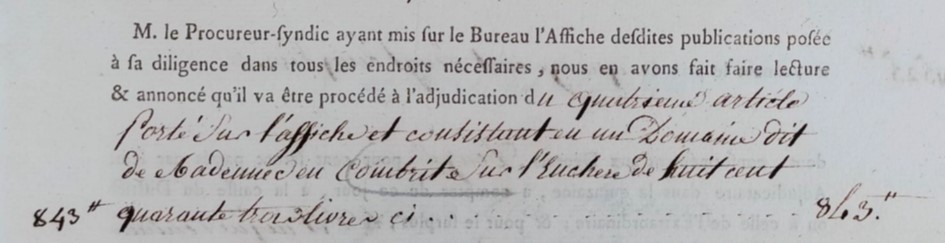 M. le Procureur-ſyndic ayant mis ſur le Bureau l'Affiche deſdites publications poſée
à ſa diligence dans tous les endroits néceſſaires, nous en avons fait faire lecture
& annoncé qu'il va être procédé à l'adjudication du quatrieme article
porté Sur l'affiche et consistant en un Domaine dit
de en Combrit Sur l'Enchere de huit cent
843ᵗᵗ quarante trois livres ci . . . 843.ᵗᵗ